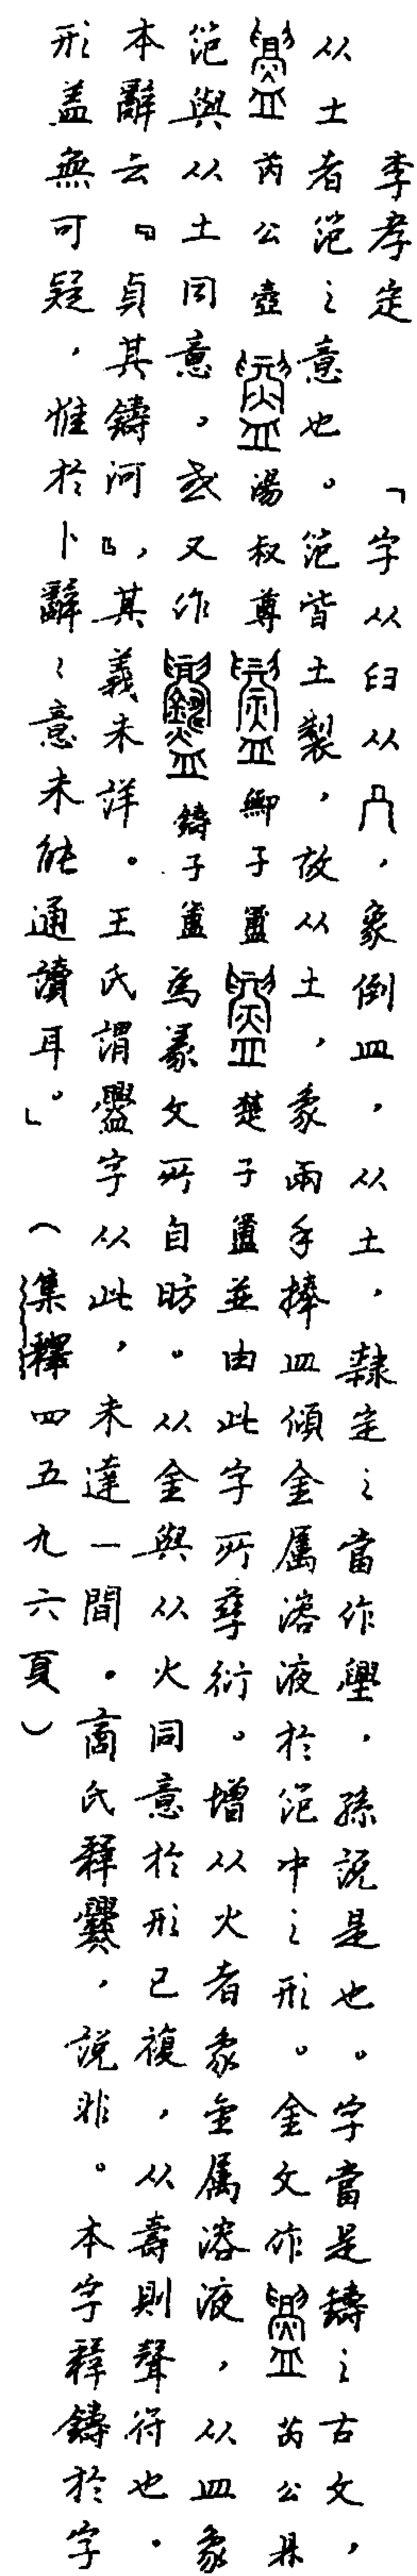 李孝定 「字从臼从𠔼,象倒皿,从土,隸定之當作壆,孫說是也。字當是鑄之古文,
从土者笵之意也。笵皆土製,故从土,象兩手捧皿傾金属溶液於笵中之形。金文作 芮公鼎
芮公壺 湯叔尊 鄦子簠 楚子簠並由此字所孳衍。增从火者象金属溶液,从皿象
笵與从土同意。或又作 鑄子簠為篆文所自昉。从金與从火同意於形已複,从壽則聲符也。
本辭云『貞其鑄河』,其義未詳。王氏謂釁字从此,未達一間。商氏釋爨,說非。本字釋鑄於字
形盖無可疑,惟於卜辭之意未能通讀耳。」(集釋四五九六頁)